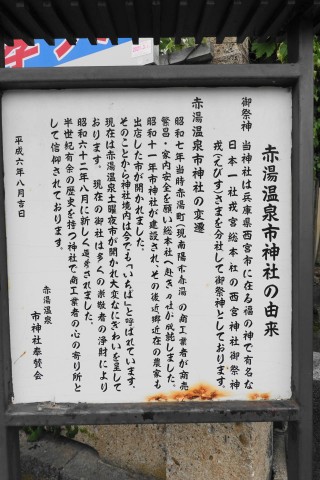 赤湯温泉市神社の由来
御祭神 当神社は兵庫県西宮市に在る福の神で有名な
日本一社戎宮総本社の西宮神社御祭神
戎(えびす)さまを分社して御祭神としております。
赤湯温泉市神社の変遷
昭和七年当時赤湯町(現南陽市赤湯)の商工業者が商売
繁昌・家内安全を願い総本社へ赴き々は成就しました。
昭和十一年市神社が建設され、その後近郷近在の農家も
出店した市が開かれました。
そのことから神社境内は今でも「いちば」と呼ばれています。
現在は赤湯温泉土曜夜市が開れ大変なにぎわいを呈して
おります。現在の御社は多くの崇敬者の浄財により
昭和六十二年八月に新しく遷宮されました。
半世紀有余の歴史を持つ神社で商工業者の心の寄り所と
して信仰されております。
平成六年八月吉日
赤湯温泉
市神社奉賛会